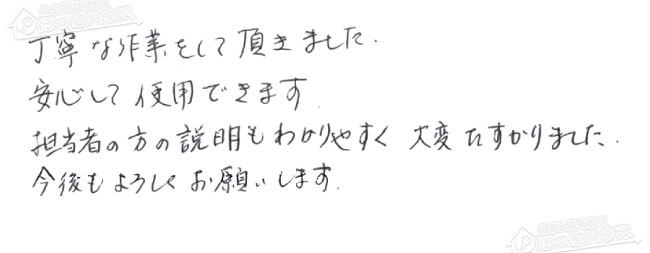 丁寧な作業をして頂きました.
安心して使用できます.
担当者の方の説明もわかりやすく 大変たすかりました.
今後もよろしくお願いします.